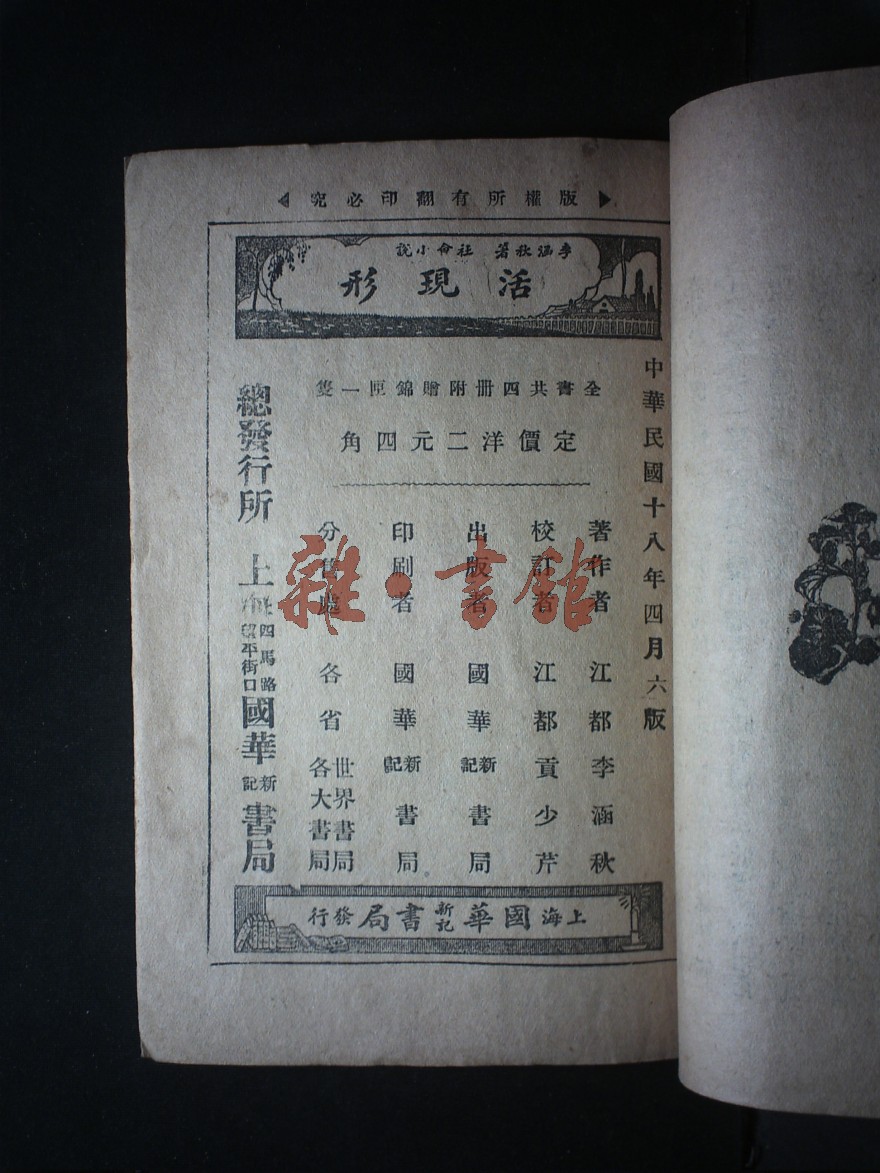 版權所有翻印必究
李涵秋著 社會小說
活現形
中華民國十八年四月六版
全書共四册附贈錦匣一隻
定價洋二元四角
著作者 江都李涵秋
校訂者 江都貢少芹
出版者 國華新記書局
印刷者 國華新記書局
分售處 各省世界書局各大書局
總發行所 上海四馬路望平街口國華新記書局
上海國華新記書局發行
雜·書館